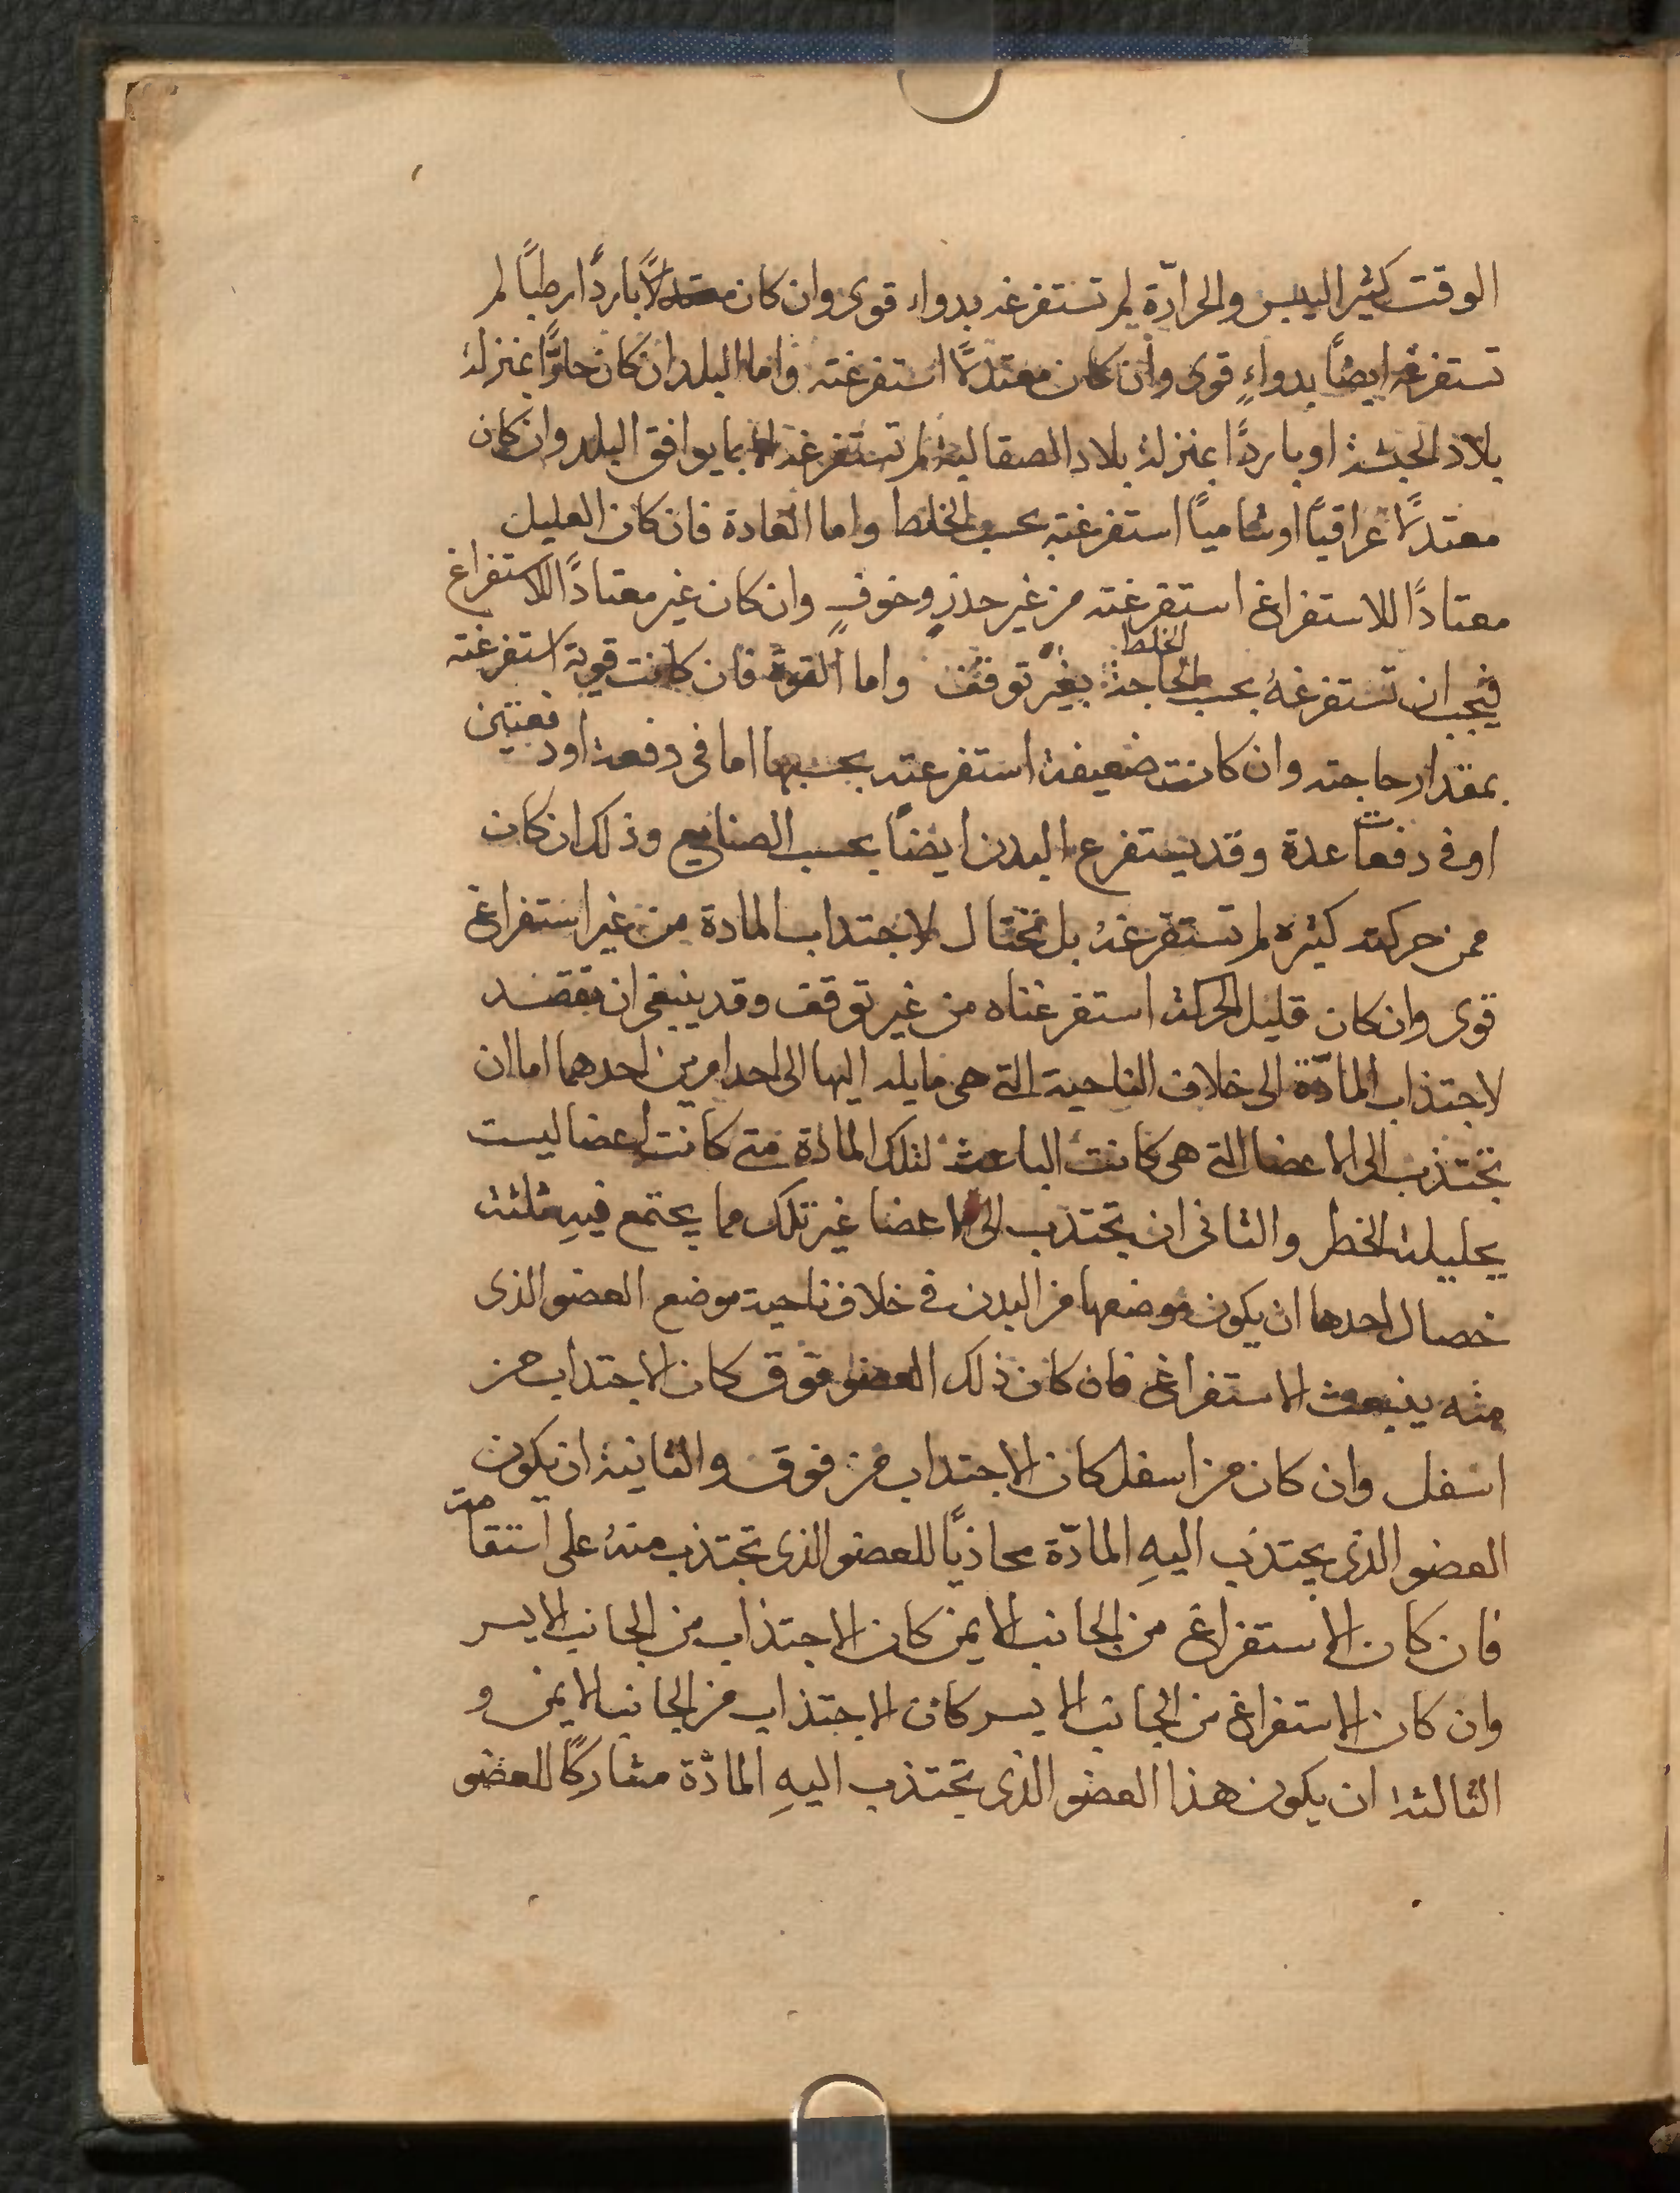 الوقت كثير اليبس والحرارة لم تستفرغه بدواء قوى وان كان باردًا رطبًا لم
تستفرغه ايضًا بدواءٍ قوى وان كان معتدلًا استفرغته واما البلد ان كان حارًّا بمنزلة
بلاد الحبشة او باردًا بمنزلة بلاد الصقالبة لم تستفرغه الا بما يوافق البلد وان كان
معتدلًا عراقيًا او شاميًا استفرغته بحسب الخلط واما العادة فان كان العليل
معتادًا للاستفراغ استفرغته من غير حذرٍ وخوفٍ وان كان غير معتادًا للاستفراغ
فيجب ان تستفرغهُ بحسب الحاجة الخلط بغير توقف واما القوة فان كانت قوية استفرغته
بمقدار حاجته وان كانت ضعيفة استفرغته بحسبها اما فى دفعة او دفعتين
او فى دفعات عدة وقد يستفرغ البدن ايضًا بحسب الصنايع وذلك ان كان
ممن حركته كثيره لم تستفرغهُ بل تحتال لاجتداب المادة من غير استفراغ
قوى وان كان قليل الحركة استفرغناه من غير توقف وقد ينبغى ان نقصد
لاجتذاب المادّة الى خلاف الناحية التى هى مايله اليها الى احد امرين احدهما اما ان
تجتذب الى الاعضا التى هى كانت الباعثة لتلك المادة متى كانت اعضا ليست
بجليلة الخطر والثانى ان تجتذب الى الاعضا غير تلك مما يجتمع فيهِ ثلثة
خصال احدها ان يكون موضعها من البدن فى خلاف ناحية موضع العضو الذى
منه ينبعث الاستفراغ فان كان ذلك العضو فوق كان الاجتداب من
اسفل وان كان من اسفل كان الاجتداب من فوق والثانية ان يكون
العضو الذى يجتذب اليهِ المادّة محاذيًا للعضو الذى تجتذب منهُ على استقامة
فان كان الاستفراغ من الجانب الايمن كان الاجتذاب من الجانب الايسر
وان كان الاستفراغ من الجانب الايسر كان الاجتذاب من الجانب الايمن و
الثالثة ان يكون هذا العضو الذى تجتذب اليهِ المادّة مشاركًا للعضو